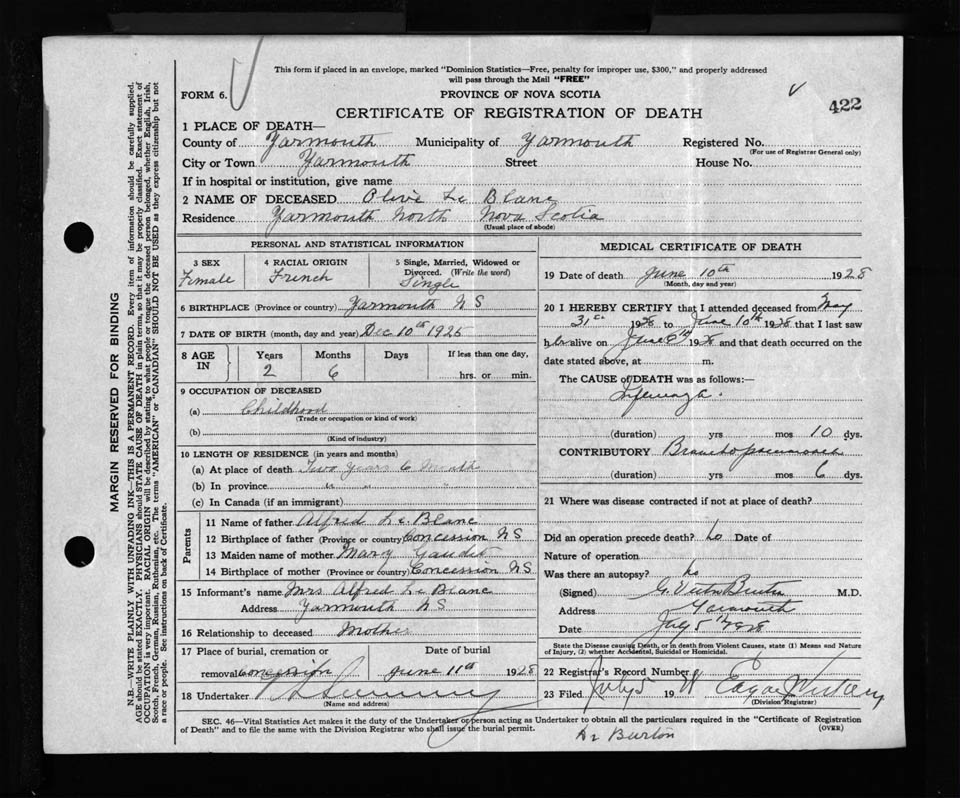 This form if placed in an envelope, marked "Dominion Statistics—Free, penalty for improper use, $300," and properly addressed
will pass through the Mail "FREE"
FORM 6.
PROVINCE OF NOVA SCOTIA
422
CERTIFICATE OF REGISTRATION OF DEATH
1 PLACE OF DEATH—
County of Yarmouth Municipality of Yarmouth Registered No.
(For use of Registrar General only)
City or Town Yarmouth Street House No.
If in hospital or institution, give name
2 NAME OF DECEASED Olive Le Blanc
Residence Yarmouth North Nova Scotia
(Usual place of abode)
PERSONAL AND STATISTICAL INFORMATION
3 SEX
Female
4 RACIAL ORIGIN
French
5 Single, Married, Widowed or
Divorced. (Write the word)
Single
6 BIRTHPLACE (Province or country) Yarmouth NS
7 DATE OF BIRTH (month, day and year) Dec 10th 1925
8 AGE IN
Years Months Days If less than one day,
2 6 hrs. or min.
9 OCCUPATION OF DECEASED
(a) Childhood
(Trade or occupation or kind of work)
(b)
(Kind of industry)
10 LENGTH OF RESIDENCE (in years and months)
(a) At place of death Two Years 6 Month
(b) In province " " "
(c) In Canada (if an immigrant)
Parents
11 Name of father Alfred Le Blanc
12 Birthplace of father (Province or country) Concession NS
13 Maiden name of mother Mary Gaudet
14 Birthplace of mother (Province or country) Concession NS
15 Informant's name Mrs Alfred Le Blanc
Address Yarmouth NS
16 Relationship to deceased Mother
17 Place of burial, cremation or Date of burial
removal Concession June 11th 1928
18 Undertaker
(Name and address)
MEDICAL CERTIFICATE OF DEATH
19 Date of death June 10th 1928
(Month, day and year)
20 I HEREBY CERTIFY that I attended deceased from May
31st 1928 to June 10th 1928 that I last saw
her alive on June 6th 1928 and that death occurred on the
date stated above, at m.
The CAUSE of DEATH was as follows:—
Influenza.
(duration) yrs mos 10 dys.
CONTRIBUTORY Broncho pneumonia
(duration) yrs mos 6 dys.
21 Where was disease contracted if not at place of death?
Did an operation precede death? no Date of
Nature of operation
Was there an autopsy? no
(Signed) G. Burton M.D.
Address Yarmouth
Date July 5th 1928
State the Disease causing Death, or in death from Violent Causes, state (1) Means and Nature
of Injury, (2) whether Accidental, Suicidal or Homicidal.
22 Registrar's Record Number
23 Filed July 5 19 Edgar
(Division Registrar)
SEC. 46—Vital Statistics Act makes it the duty of the Undertaker or person acting as Undertaker to obtain all the particulars required in the "Certificate of Registration
of Death" and to file the same with the Division Registrar who shall issue the burial permit.
(OVER)
Dr Burton
MARGIN RESERVED FOR BINDING
N.B.—WRITE PLAINLY WITH UNFADING INK—THIS IS A PERMANENT RECORD. Every item of information should be carefully supplied.
AGE should be stated EXACTLY. PHYSICIANS should STATE CAUSE OF DEATH in plain terms, so that it may be properly classified. Exact statement of
OCCUPATION is very important. RACIAL ORIGIN will be described by stating to what people or tongue the deceased person belonged, whether English, Irish,
Scotch, French, German, Russian, Ruthenian, etc. The terms "AMERICAN" or "CANADIAN" SHOULD NOT BE USED as they express citizenship but not
a race or people. See instructions on back of Certificate.